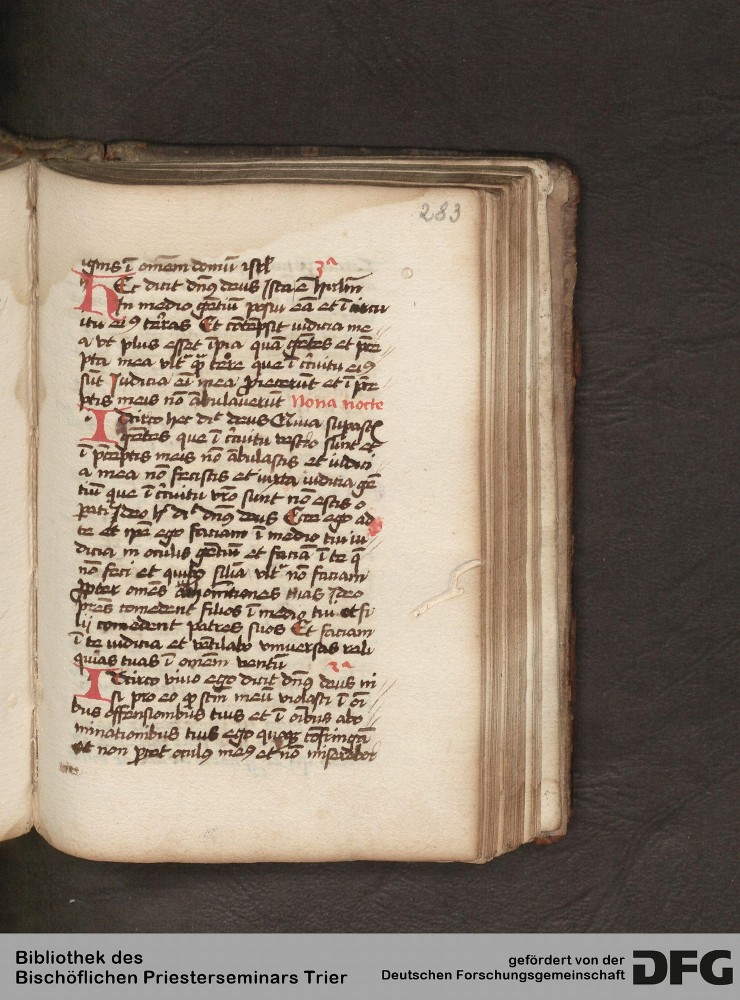 283
ignis ī om̄em domū isrl̄ 3ᵃ
Hec dicit dn̄s deus Ista ē hrlm̄
In medio gētiū posui eā et ī circu
itu eiꝰ terras Et cōtēpsit iudicia me
a vt plus esset īpia quā gētes et p̄ce
pta mea vltᵃ qᵃ terre que ī c̄cuitu eiꝰ
sūt Iudicia eī mea proiecerūt et ī p̄ce
ptis meis nō ābulauerūt Nona nocte
Idcirco hec dīt deus Quia supastꝭ
gētes que ī c̄cuitu vestro sunt et
ī p̄ceptis meis nō ābulastis et iudici
a mea nō fecistis et iuxta iudicia gē
tiū que ī c̄cuitu vr̄o sunt nō estis o
pati Ideo h̄ dīt dn̄s deus Ecce ego ad
te et ip̄e ego faciam ī medio tui iu
dicia in oculis gētiū et faciā ī te q̄
nō feci et quibꝰ silia vltᵃ nō faciam
ꝓpter om̄es abhomītiones tuas Ideo
pr̄es comedent filios ī medio tui et fi
lij comedent patres suos Et faciam
ī te iudicia et vētilabo vniuersas reli
quias tuas ī om̄em ventū 2ᵃ
Idcirco viuo ego dicit dn̄s deus ni
si pro eo qͩ scm̄ meū violasti ī oī
bus offensionibus tuis et ī oībus abo
minationibus tuis ego quoqꝫ cōfringā
et non parcet oculꝰ meꝰ et nō miserebor
Bibliothek des
Bischöflichen Priesterseminars Trier
gefördert von der
Deutschen Forschungsgemeinschaft
DFG